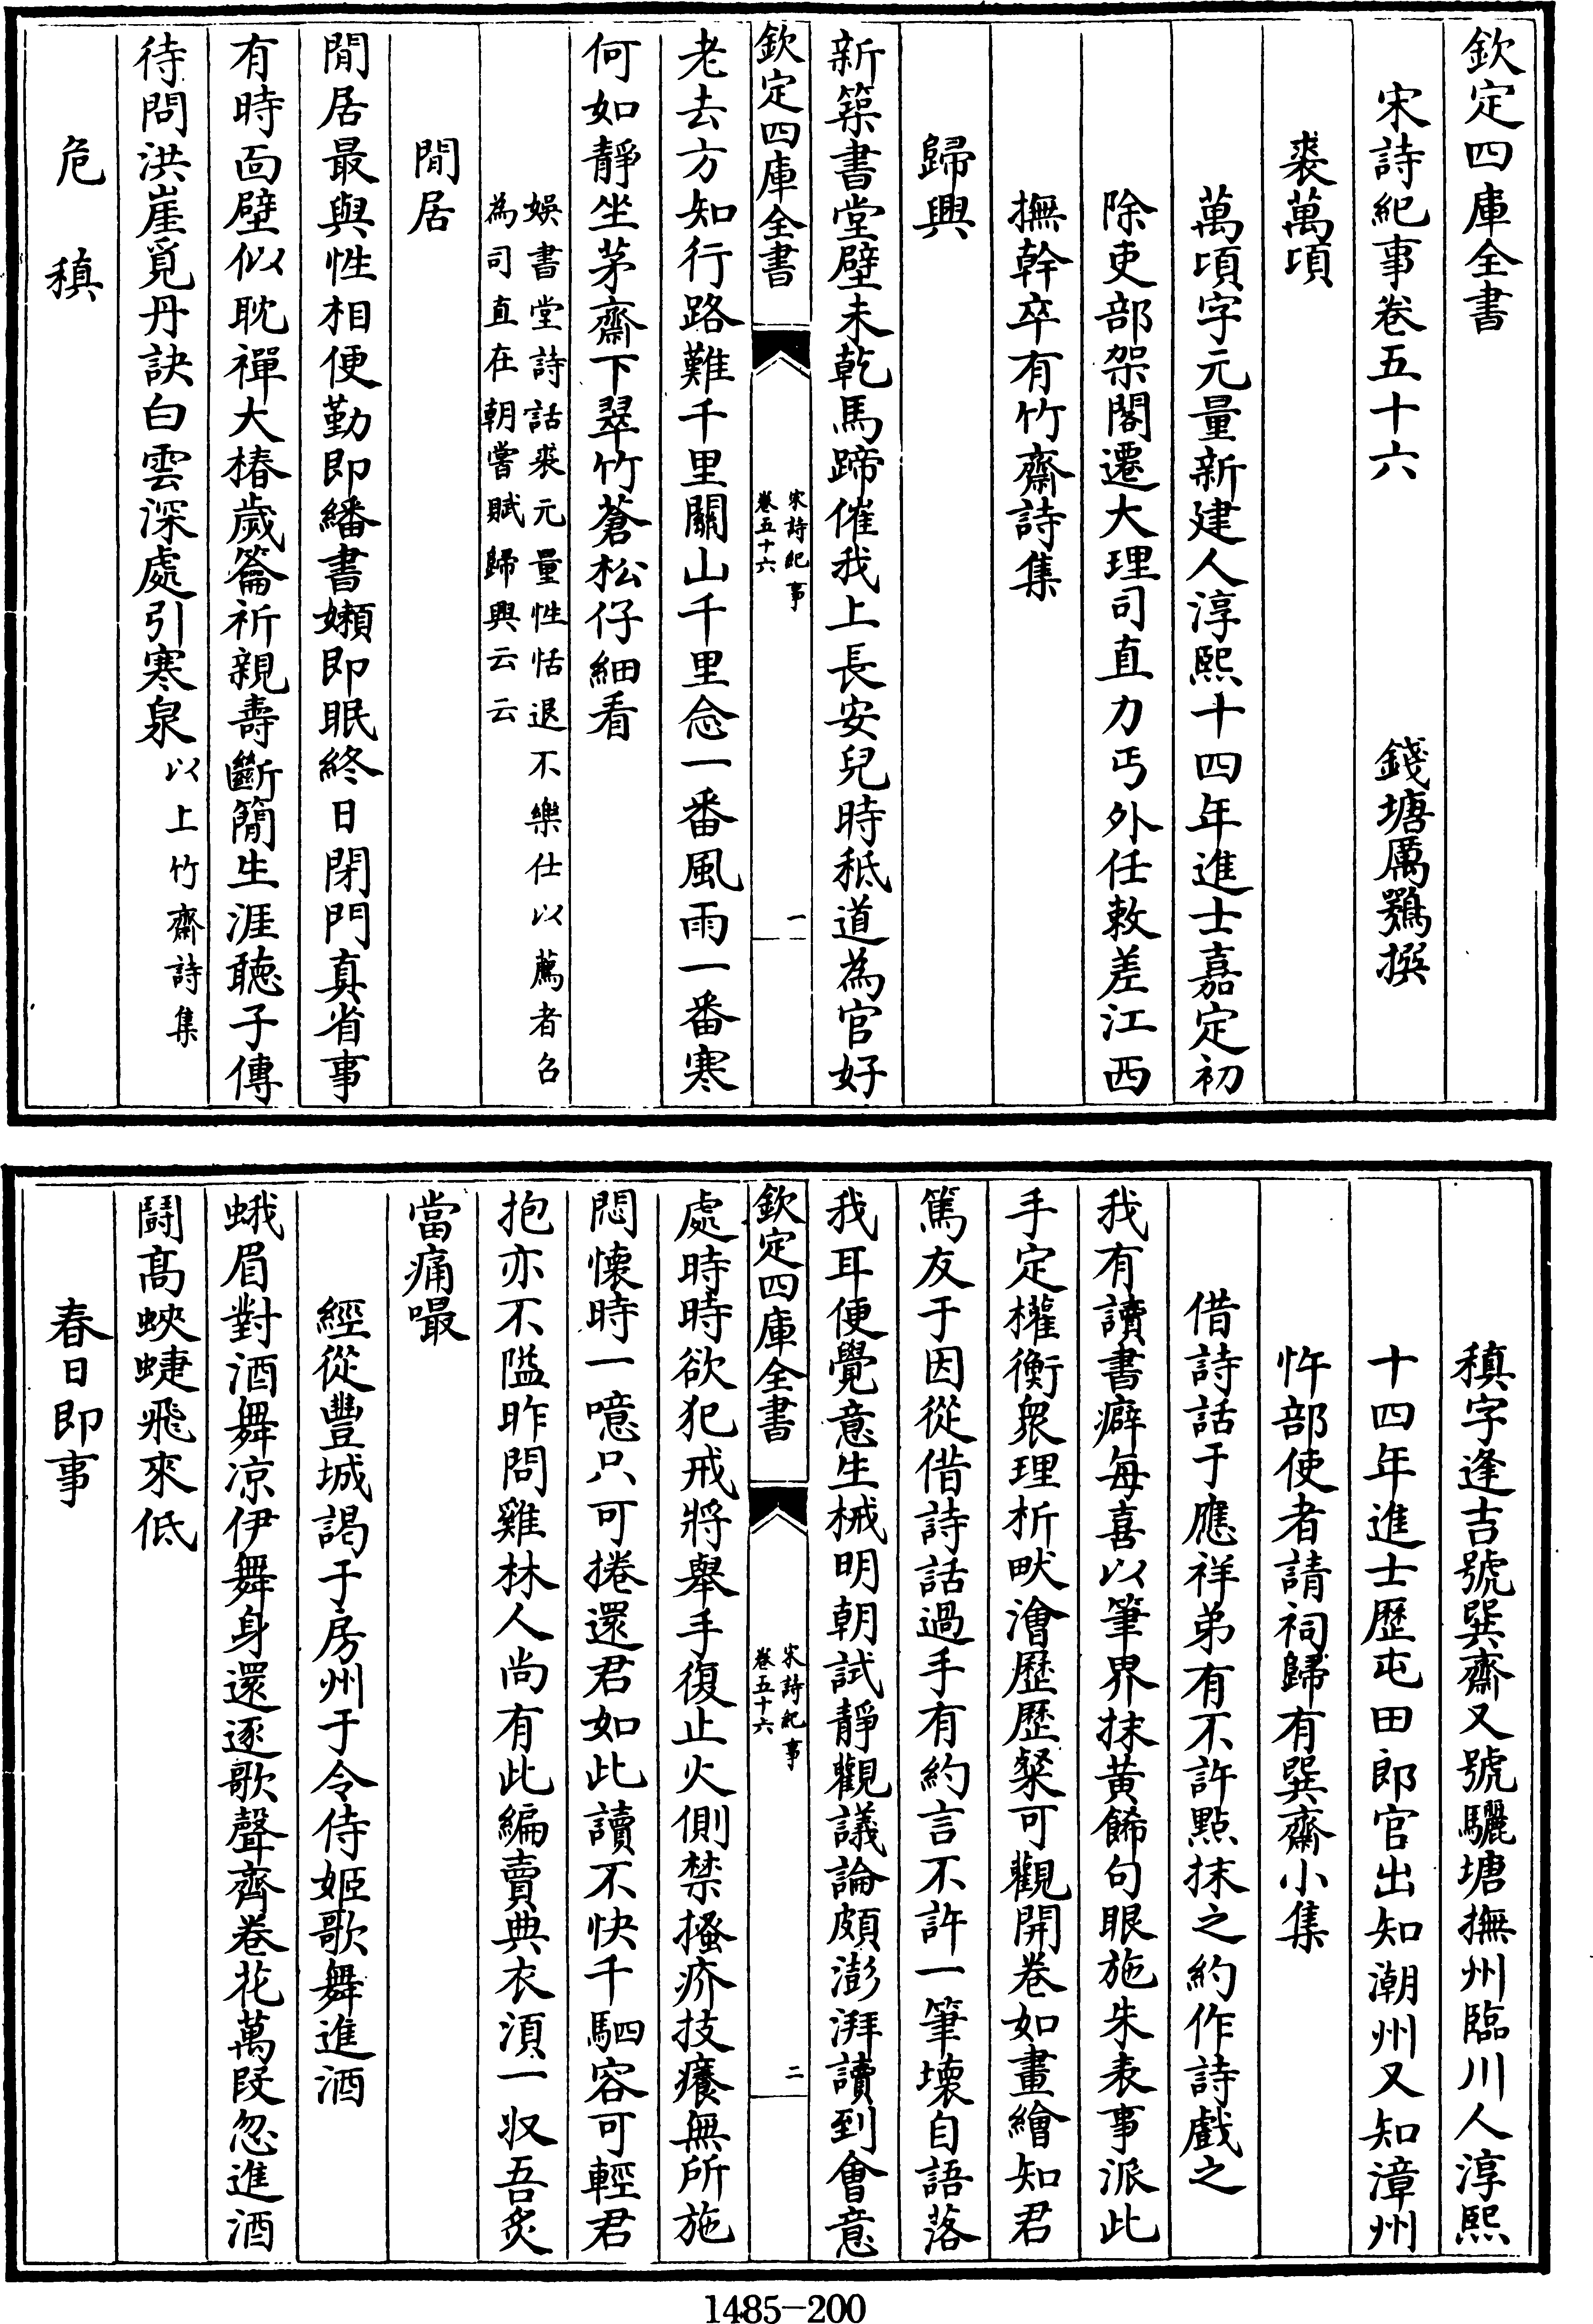 欽定四庫全書
宋詩紀事卷五十六
錢塘厲鶚撰
裘萬頃
萬頃字元量新建人淳熙十四年進士嘉定初
除吏部架閣遷大理司直力丐外任敕差江西
撫幹卒有竹齋詩集
歸興
新築書堂壁未乾馬蹄催我上長安兒時秪道為官好
欽定四庫全書
宋詩紀事
卷五十六
一
老去方知行路難千里關山千里念一番風雨一番寒
何如靜坐茅齋下翠竹蒼松仔細看
娱書堂詩話裘元量性恬退不樂仕以薦者召
為司直在朝嘗賦歸興云云
閒居
閒居最與性相便勤即繙書嬾即眠終日閉門真省事
有時面壁似耽禪大椿歲籥祈親壽斷簡生涯聽子傳
待問洪崖覓丹訣白雲深處引寒泉以上竹齋詩集
危稹
稹字逢吉號巽齋又號驪塘撫州臨川人淳熙
十四年進士歷屯田郎官出知潮州又知漳州
忤部使者請祠歸有巽齋小集
借詩話于應祥弟有不許點抹之約作詩戲之
我有讀書癖每喜以筆界抹黄飾句眼施朱表事派此
手定權衡衆理析畎澮歷歷粲可觀開卷如畫繪知君
篤友于因從借詩話過手有約言不許一筆壞自語落
我耳便覺意生械明朝試靜觀議論頗澎湃讀到會意
欽定四庫全書
宋詩紀事
卷五十六
二
處時時欲犯戒將舉手復止火側禁搔疥技癢無所施
悶懷時一噫只可捲還君如此讀不快千駟容可輕君
抱亦不隘昨問雞林人尚有此編賣典衣湏一收吾炙
當痛嘬
經從豐城謁于房州于令侍姬歌舞進酒
蛾眉對酒舞凉伊舞身還逐歌聲齊卷花萬段忽進酒
鬭髙蛺蜨飛來低
春日即事
1485-200